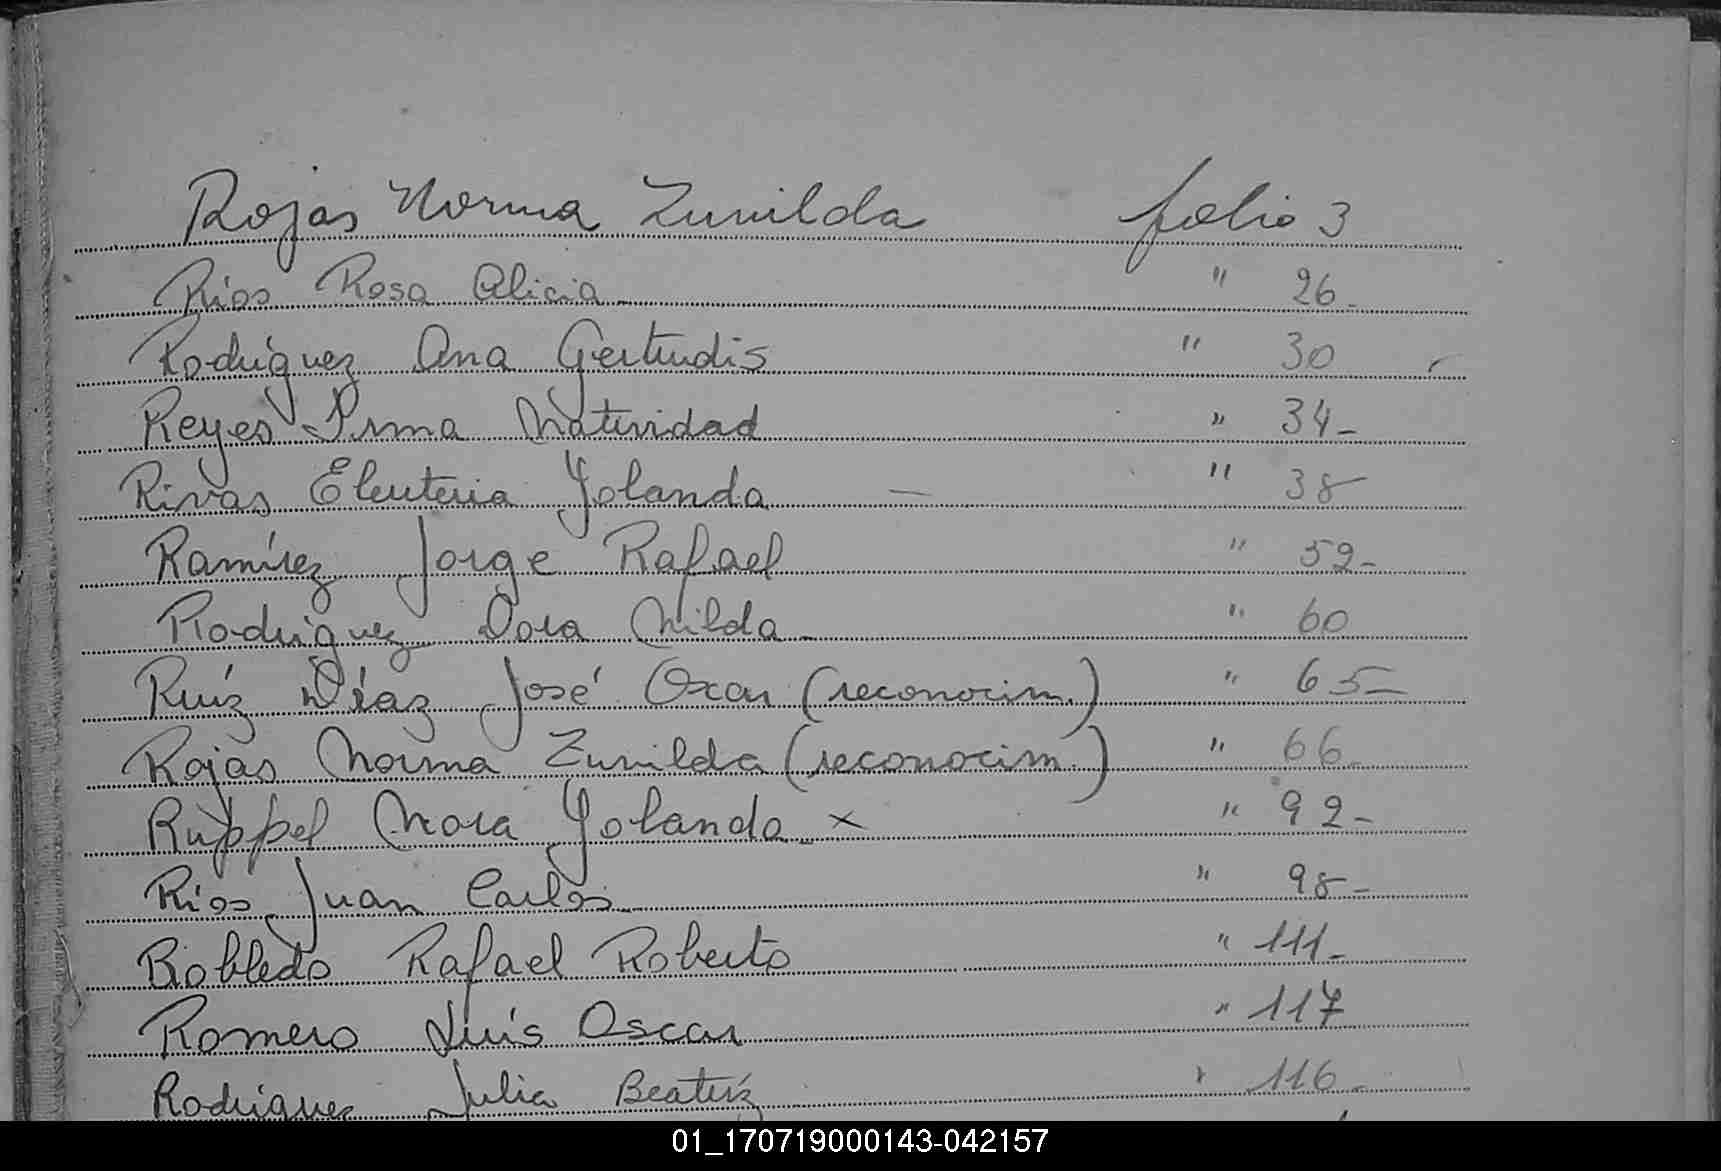 Rojas Norma Zunilda folio 3
Ríos Rosa Alicia " 26-
Rodríguez Ana Gertrudis " 30
Reyes Irma Natividad " 34-
Rivas Eleuteria Yolanda — " 38
Ramírez Jorge Rafael " 52-
Rodríguez Dora Nilda " 60
Ruíz Díaz José Oscar (reconocim.) " 65-
Rojas Norma Zunilda (reconocim.) " 66-
Ruppel Nora Yolanda x " 92-
Ríos Juan Carlos " 98-
Robledo Rafael Roberto " 111-
Romero Luís Oscar " 117
Rodríguez Julia Beatríz " 116-
01_170719000143-042157